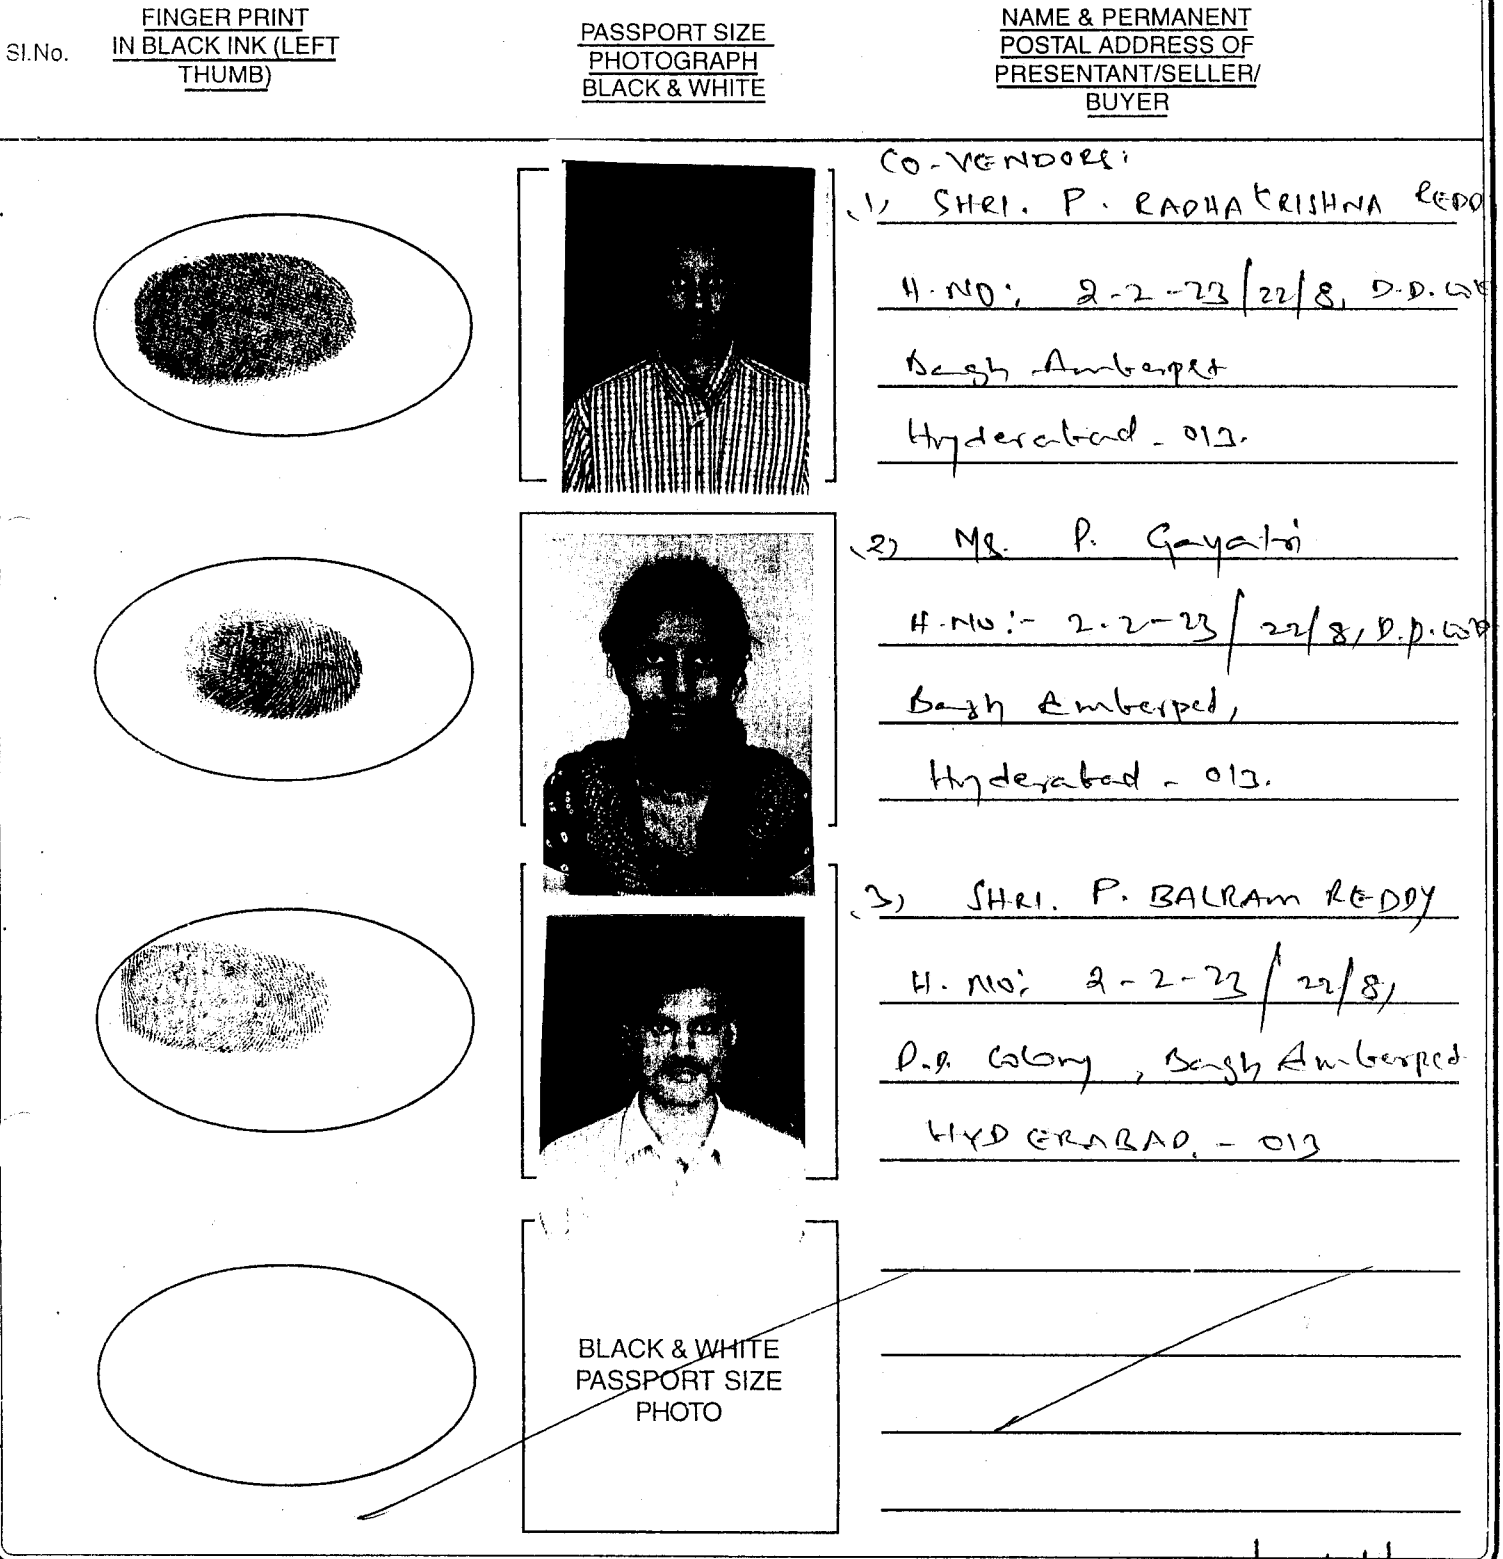 Sl.No.
FINGER PRINT
IN BLACK INK (LEFT
THUMB)
PASSPORT SIZE
PHOTOGRAPH
BLACK & WHITE
NAME & PERMANENT
POSTAL ADDRESS OF
PRESENTANT/SELLER/
BUYER
CO-VENDORS:
(1) SHRI. P. RADHA KRISHNA REDD
H.NO: 2-2-23/22/8, D.D.
Bagh Amberpet
Hyderabad - 013.
(2) Ms. P. Gayatri
H.NO:- 2-2-23/22/8, D.D.
Bagh Amberpet,
Hyderabad - 013.
(3) SHRI. P. BALRAM REDDY
H. NO: 2-2-23/22/8,
D.D. Colony, Bagh Amberpet
HYDERABAD. - 013
BLACK & WHITE
PASSPORT SIZE
PHOTO